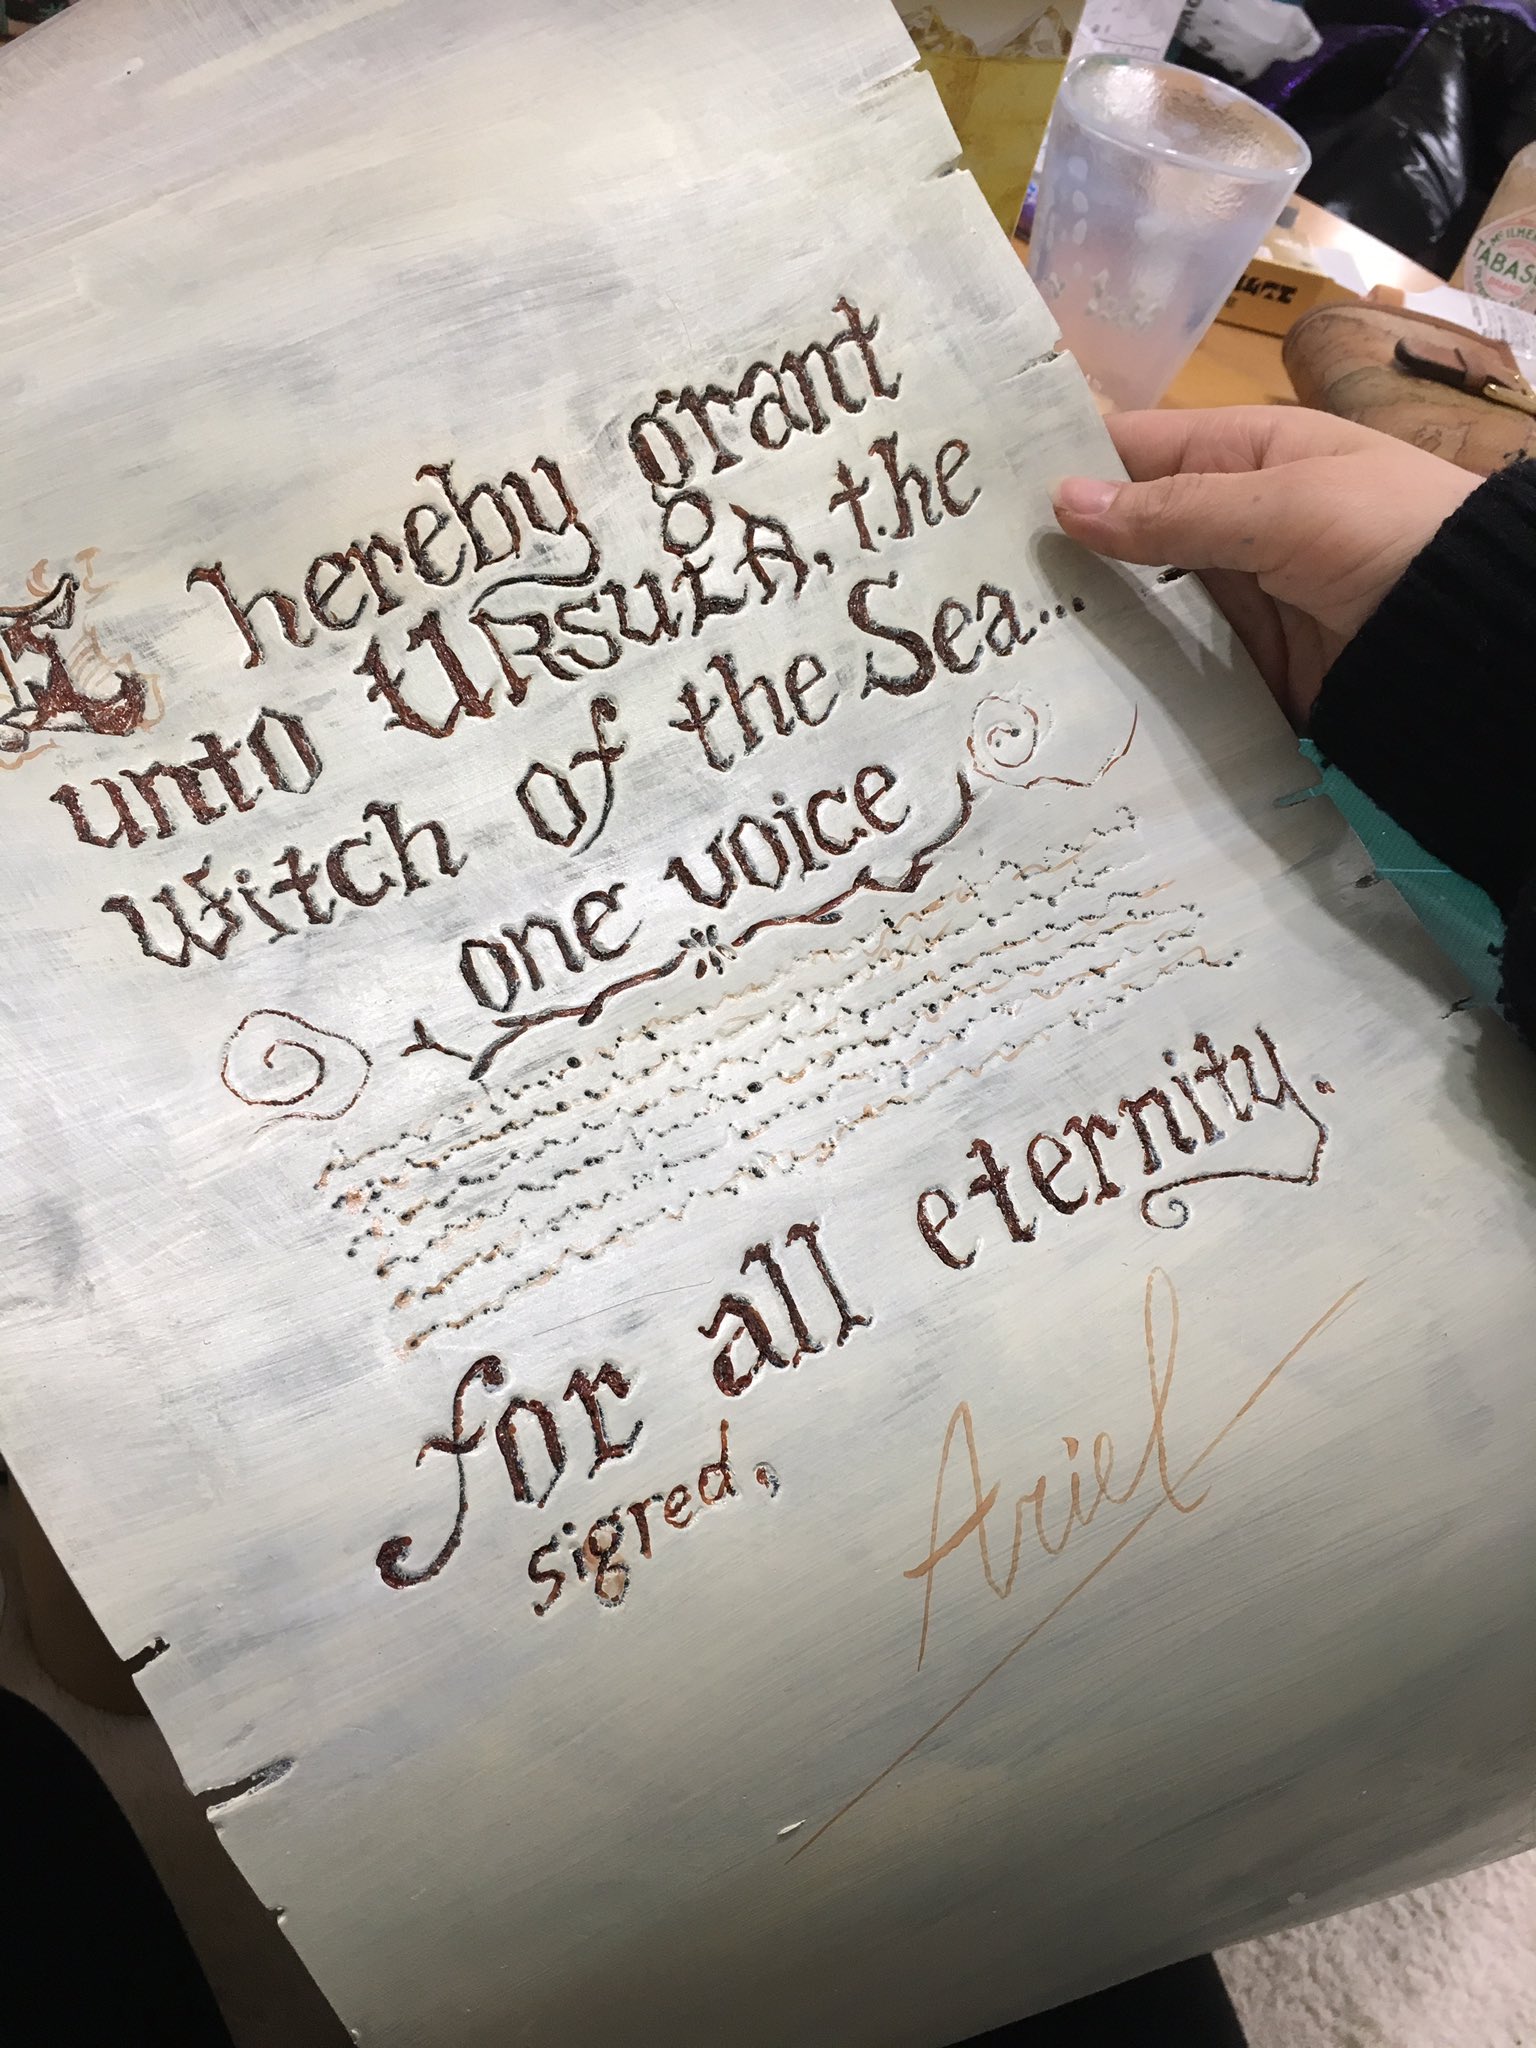 I hereby grant
unto URSULA, the
witch of the Sea...
one voice
for all eternity.
signed,
Ariel
TABAS